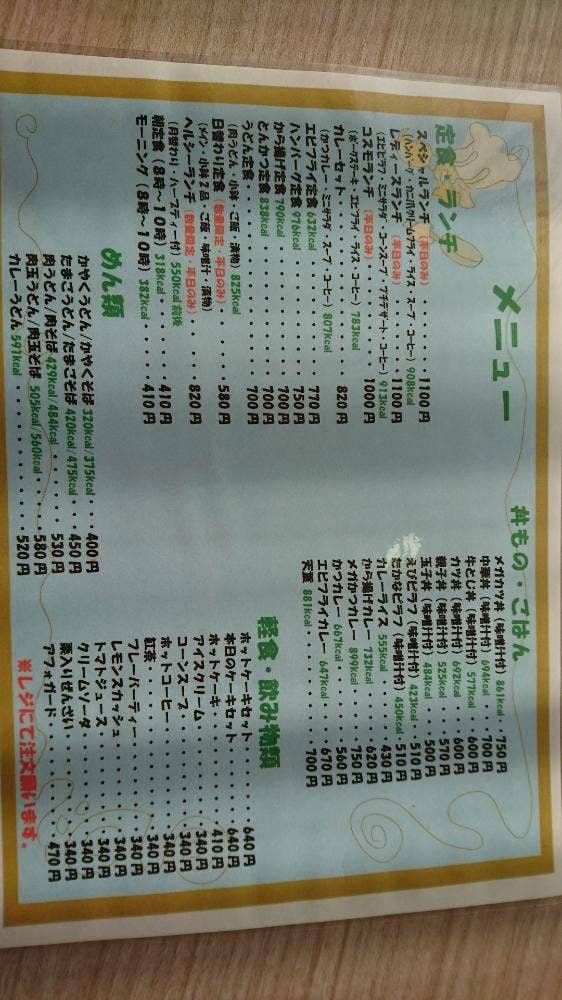 メニュー
定食・ランチ
スペシャルランチ（平日のみ）・・・・・・1100円
（ハンバーグ・カニ爪クリームフライ・ライス・スープ・コーヒー）908kcal
レディースランチ（平日のみ）・・・・・・1100円
（エビピラフ・ミニサラダ・コーンスープ・プチデザート・コーヒー）913kcal
コスモランチ（平日のみ）・・・・・・1000円
（ポークステーキ・エビフライ・ライス・コーヒー）783kcal
カレーセット・・・・・・820円
（かつカレー・ミニサラダ・スープ・コーヒー）807kcal
エビフライ定食 632kcal・・・・・・770円
ハンバーグ定食 976kcal・・・・・・750円
から揚げ定食 790kcal・・・・・・700円
とんかつ定食 838kcal・・・・・・700円
うどん定食・・・・・・700円
（肉うどん・小鉢・ご飯・漬物）825kcal
日替わり定食（数量限定・平日のみ）・・・580円
（メイン・小鉢2品・ご飯・味噌汁・漬物）
ヘルシーランチ（数量限定・平日のみ）・・・820円
（月替わり・ハーブティー付）550kcal前後
朝定食（8時～10時）318kcal・・・・・410円
モーニング（8時～10時）382kcal・・・・410円
めん類
かやくうどん/かやくそば 320kcal/375kcal・・・400円
たまごうどん/たまごそば 420kcal/475kcal・・・450円
肉うどん/肉そば 429kcal/484kcal・・・・・530円
肉玉うどん/肉玉そば 505kcal/560kcal・・・・580円
カレーうどん 591kcal・・・・・・520円
丼もの・ごはん
メガカツ丼（味噌汁付）861kcal・・750円
中華丼（味噌汁付）694kcal・・・700円
牛とじ丼（味噌汁付）577kcal・・・600円
カツ丼（味噌汁付）692kcal・・・600円
親子丼（味噌汁付）525kcal・・・570円
玉子丼（味噌汁付）484kcal・・・500円
えびピラフ（味噌汁付）423kcal・・510円
たかなピラフ（味噌汁付）450kcal・510円
カレーライス 555kcal・・・・・430円
から揚げカレー 732kcal・・・・620円
メガかつカレー 899kcal・・・・750円
かつカレー 667kcal・・・・・560円
エビフライカレー 647kcal・・・670円
天重 881kcal・・・・・・700円
軽食・飲み物類
ホットケーキセット・・・・・640円
本日のケーキセット・・・・・640円
ホットケーキ・・・・・・410円
アイスクリーム・・・・・・340円
コーンスープ・・・・・・340円
ホットコーヒー・・・・・・340円
紅茶・・・・・・・・340円
フレーバーティー・・・・・340円
レモンスカッシュ・・・・・340円
トマトジュース・・・・・・340円
クリームソーダ・・・・・・340円
栗入りぜんざい・・・・・・340円
アフォガード・・・・・・470円
※レジにて注文願います。